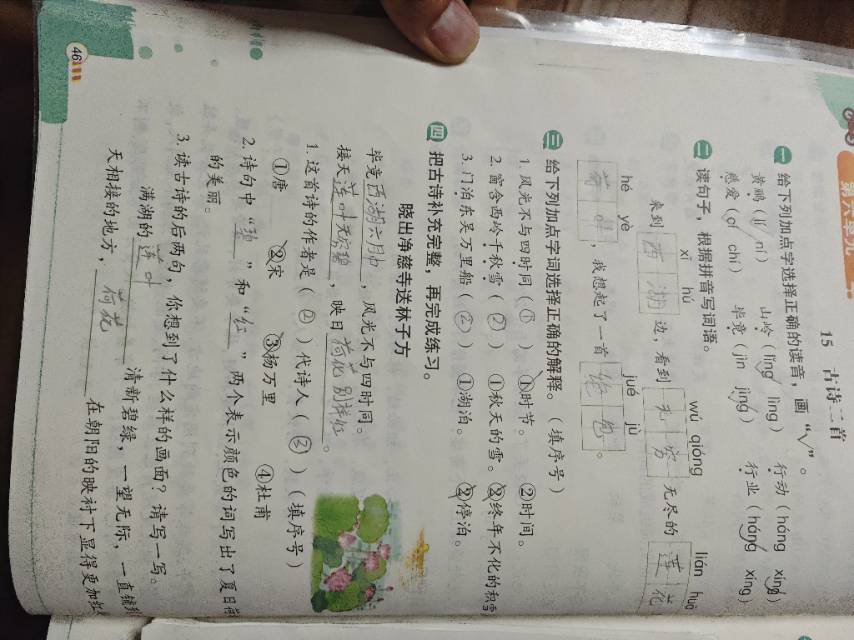 第六单元
15 古诗二首
一 给下列加点字选择正确的读音，画“√”。
黄鹂（lí√ ní） 山岭（lǐng√ lǐn） 行动（háng xíng√）
慈爱（cí√ chí） 毕竟（jìn jìng√） 行业（háng√ xíng）
二 读句子，根据拼音写词语。
xī hú wú qióng lián huā
来到西湖边，看到无穷无尽的莲花
hé yè jué jù
荷叶，我想起了一首绝句。
三 给下列加点字词选择正确的解释。（填序号）
1. 风光不与四时同（①） ①时节。 ②时间。
2. 窗含西岭千秋雪（②） ①秋天的雪。 ②终年不化的积雪
3. 门泊东吴万里船（②） ①湖泊。 ②停泊。
四 把古诗补充完整，再完成练习。
晓出净慈寺送林子方
毕竟西湖六月中，风光不与四时同。
接天莲叶无穷碧，映日荷花别样红。
1. 这首诗的作者是（②）代诗人（③）（填序号）
①唐 ②宋 ③杨万里 ④杜甫
2. 诗句中“碧”和“红”两个表示颜色的词写出了夏日
的美丽。
3. 读古诗的后两句，你想到了什么样的画面？请写一写。
满湖的莲叶清新碧绿，一望无际，一直铺到
天相接的地方，荷花在朝阳的映衬下显得更加
46